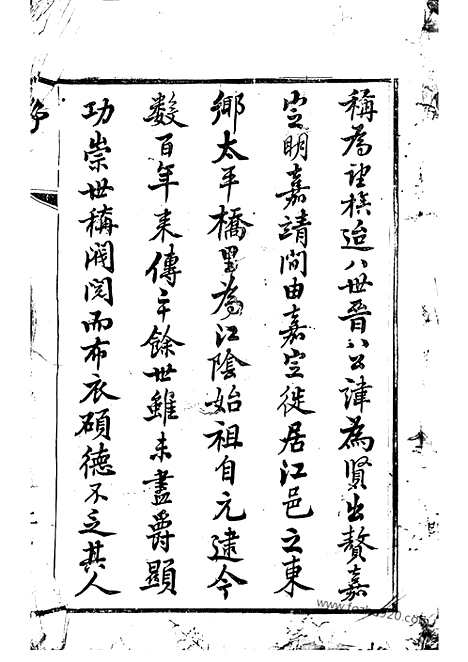 稱為望族迨八世晉八公諱為賢出贅嘉
定明嘉靖間由嘉定徙居江邑之東
鄉太平橋里為江陰始祖自元逮今
數百年来傳十餘世雖未盡爵顯
功崇世稱閥閱而布衣碩德不乏其人